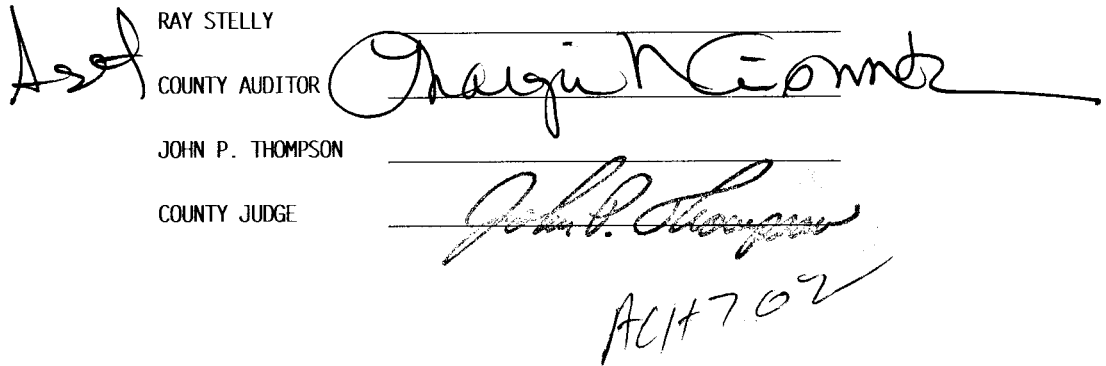 RAY STELLY
Asst COUNTY AUDITOR Margie
JOHN P. THOMPSON
COUNTY JUDGE John P. Thompson
ACH702